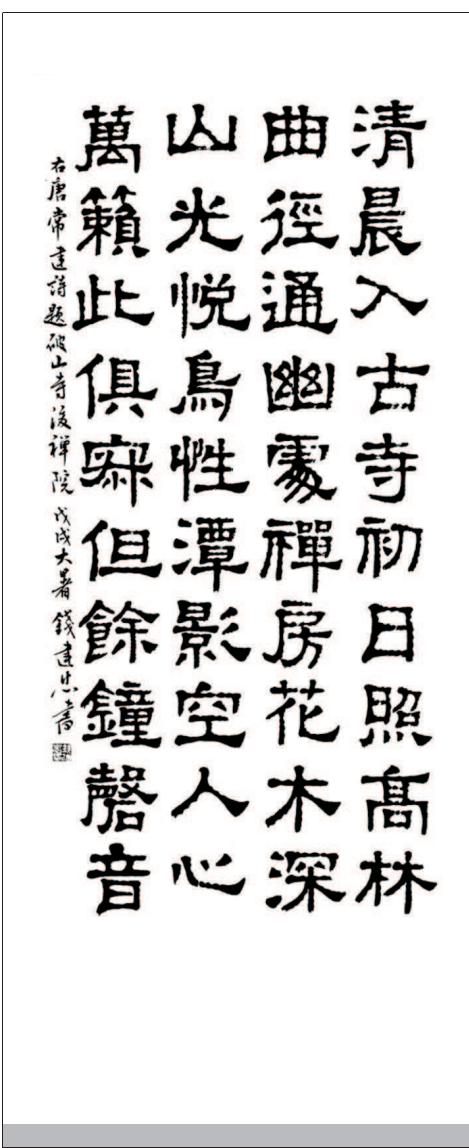 清晨入古寺初日照高林
曲徑通幽處禪房花木深
山光悅鳥性潭影空人心
萬籟此俱寂但餘鐘磬音
右唐常建詩題破山寺後禪院 戊戌大暑 錢建忠書